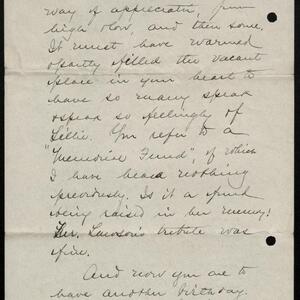 way of appreciation, from
high, low, and then some.
It must have warmed
& partly filled the vacant
place in your heart to
have so many speak
& speak so feelingly of
Lillie. You refer to a
"Memorial Fund", of which
I have heard nothing
previously. Is it a fund
being raised in her memory?
Mr. Lawson's tribute was
fine.
And now you are to
have another birthday.